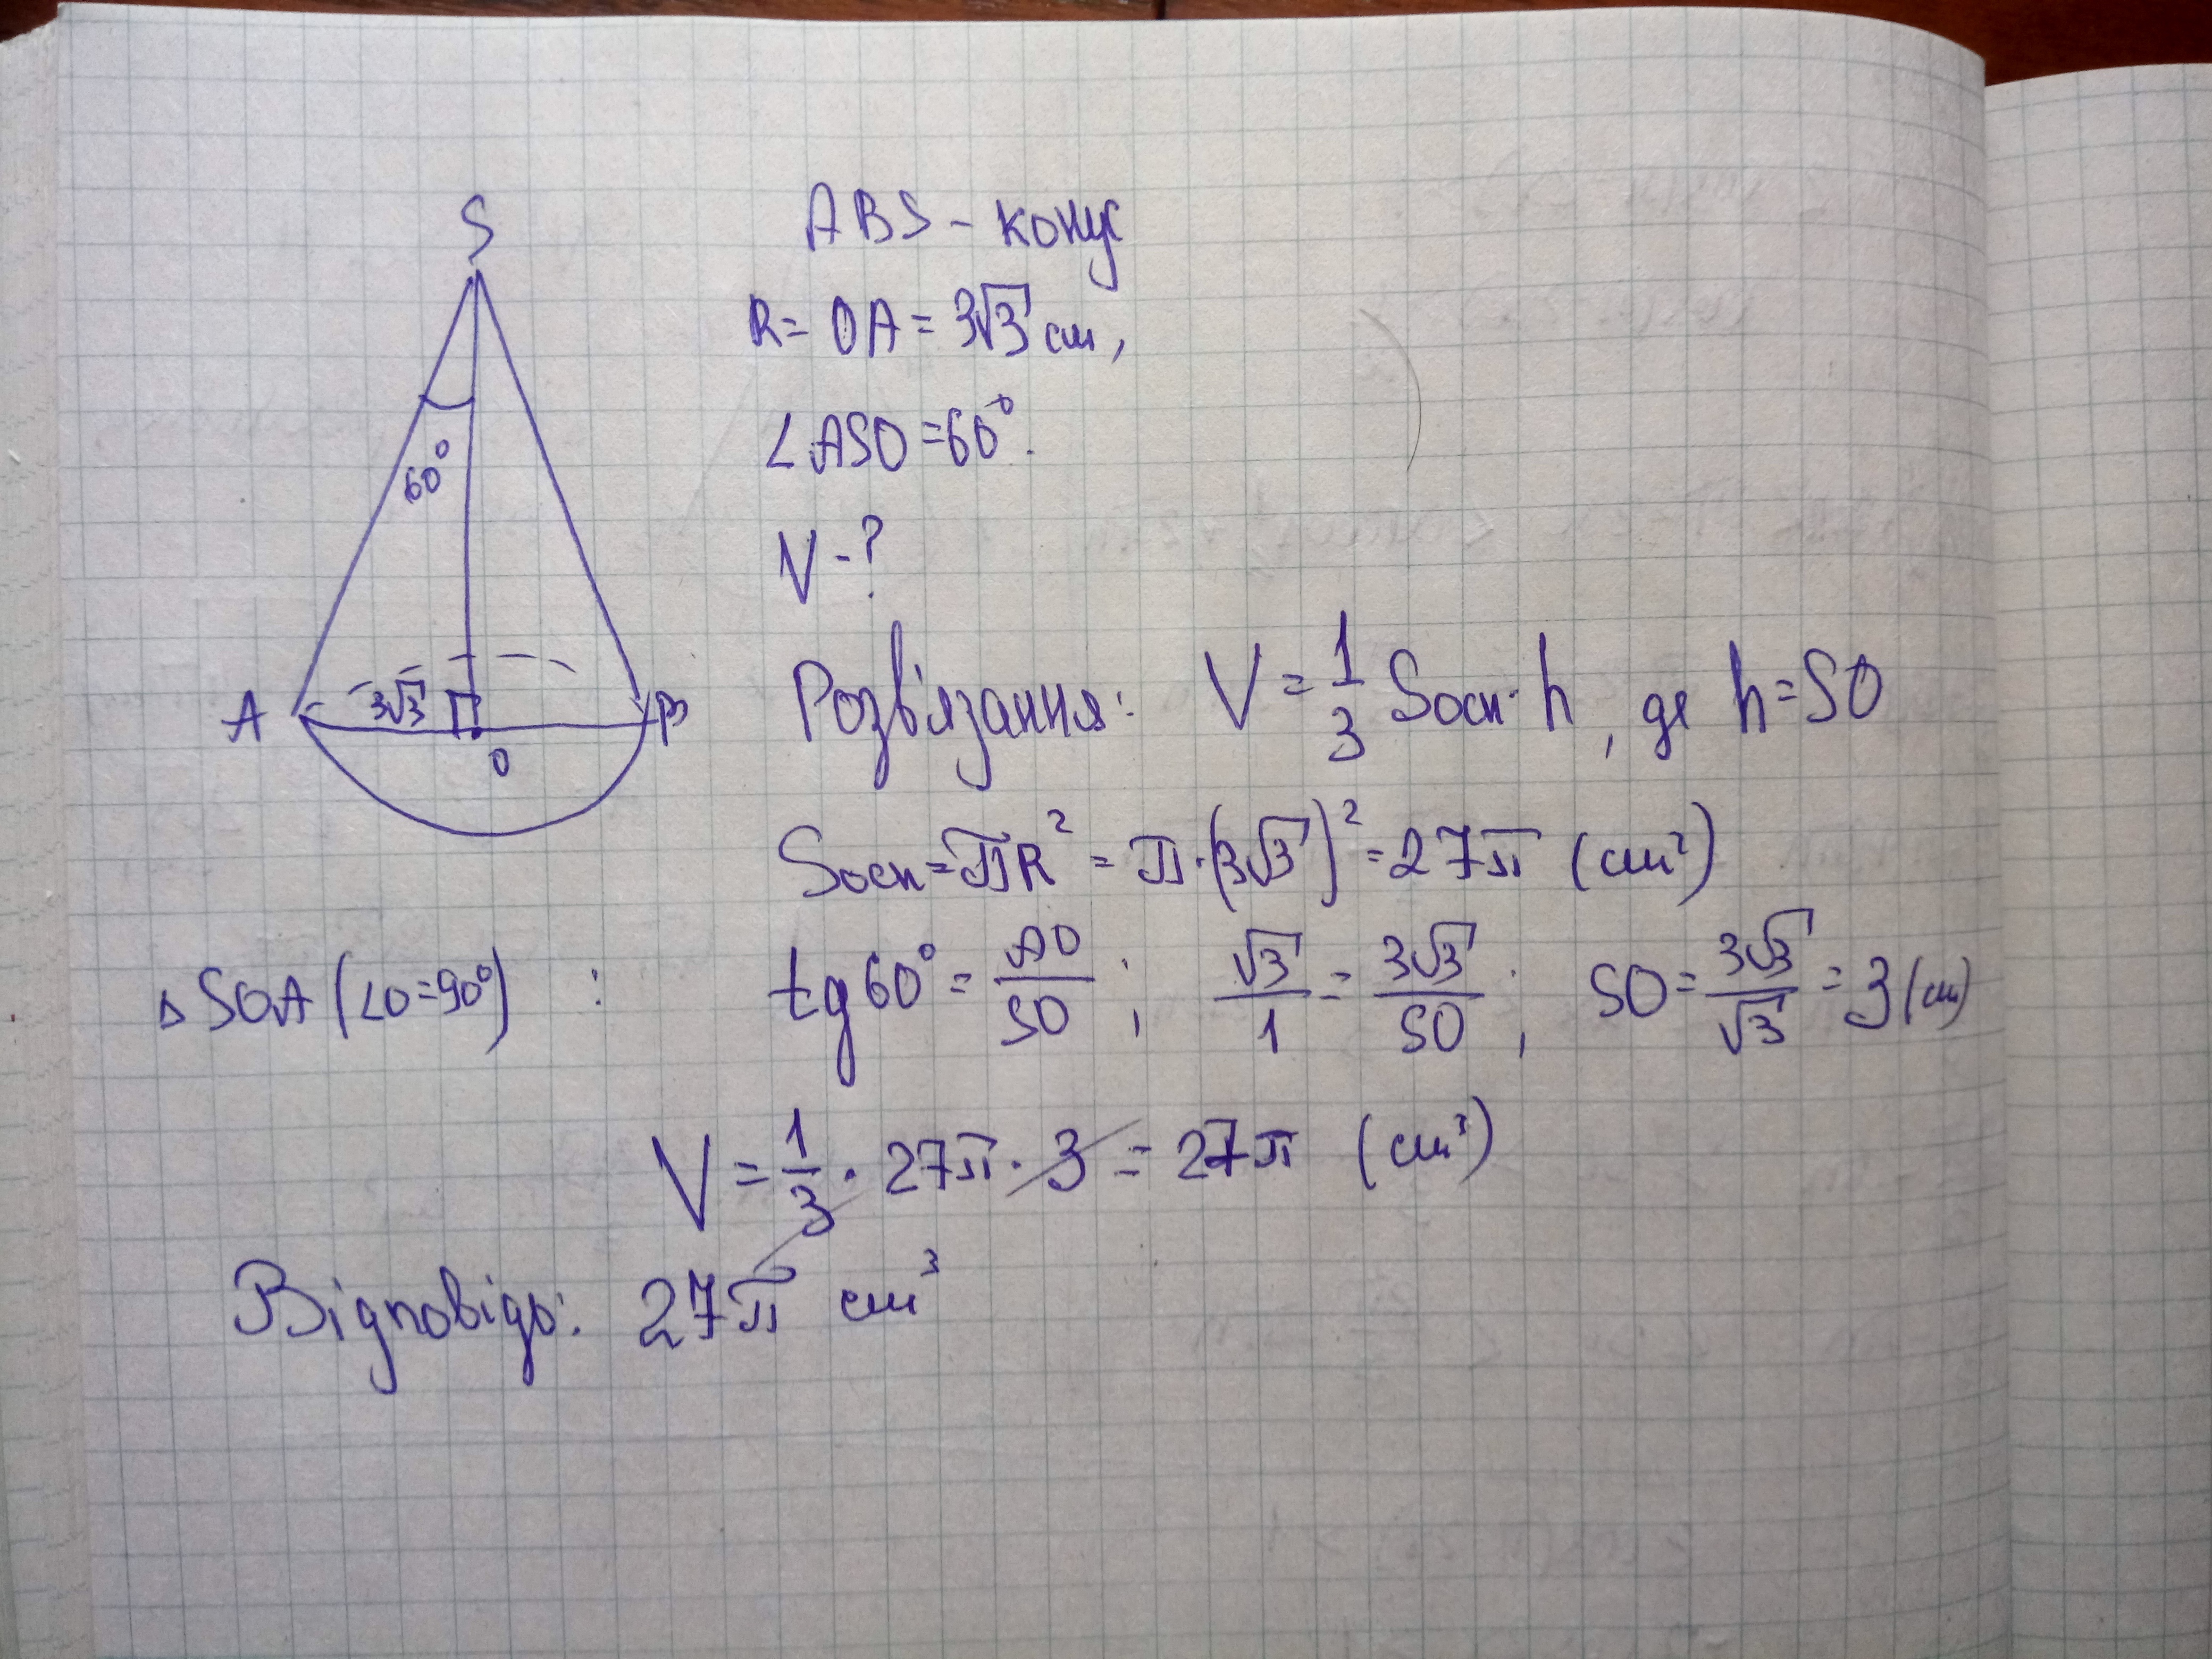 S
60°
A 3√3 B
O
ABS - конус
R = OA = 3√3 см,
∠ASO = 60°.
V - ?
Розв'язання: V = 1/3 Sосн · h, де h = SO
Sосн = πR² = π · (3√3)² = 27π (см²)
△SOA (∠O = 90°) : tg 60° = AO/SO ; √3/1 = 3√3/SO ; SO = 3√3/√3 = 3 (см)
V = 1/3 · 27π · 3 = 27π (см³)
Відповідь: 27π см³